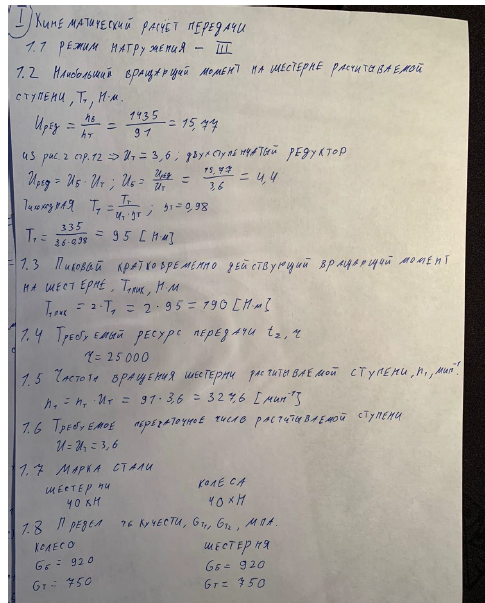 I) Кинематический расчёт передачи
1.1 Режим нагружения – III
1.2 Наибольший вращающий момент на шестерне расчитываемой
ступени, T₁, Н·м.
Uред = nб/nт = 1435/91 = 15,77
из рис. 2 стр. 12 ⇒ Uт = 3,6; двухступенчатый редуктор
Uред = Uб · Uт; Uб = Uред/Uт = 15,77/3,6 = 4,4
Тихоходная T₁ = Tт/Uт·ηт; ηт = 0,98
T₁ = 335/3,6·0,98 = 95 [Н·м]
1.3 Пиковый кратковременно действующий вращающий момент
на шестерне, T₁пик, Н·м
T₁пик = 2·T₁ = 2·95 = 190 [Н·м]
1.4 Требуемый ресурс передачи t₂, ч
ч = 25000
1.5 Частота вращения шестерни расчитываемой ступени, n₁, мин⁻¹.
n₁ = nт · Uт = 91 · 3,6 = 327,6 [мин⁻¹]
1.6 Требуемое передаточное число расчитываемой ступени
U = Uт = 3,6
1.7 Марка стали
шестерни колеса
40ХН 40ХН
1.8 Предел текучести, Gт₁, Gт₂, МПа.
колесо шестерня
Gб = 920 Gб = 920
Gт = 750 Gт = 750